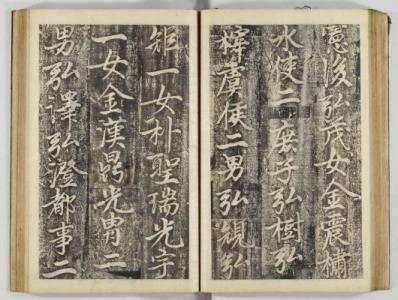 後弘茂女金震橚
水使二庶子弘樹弘
虞侯二男弘規弘
矩一女朴聖瑞光宇
一女金漢光胄二
男弘澤弘澄都事二